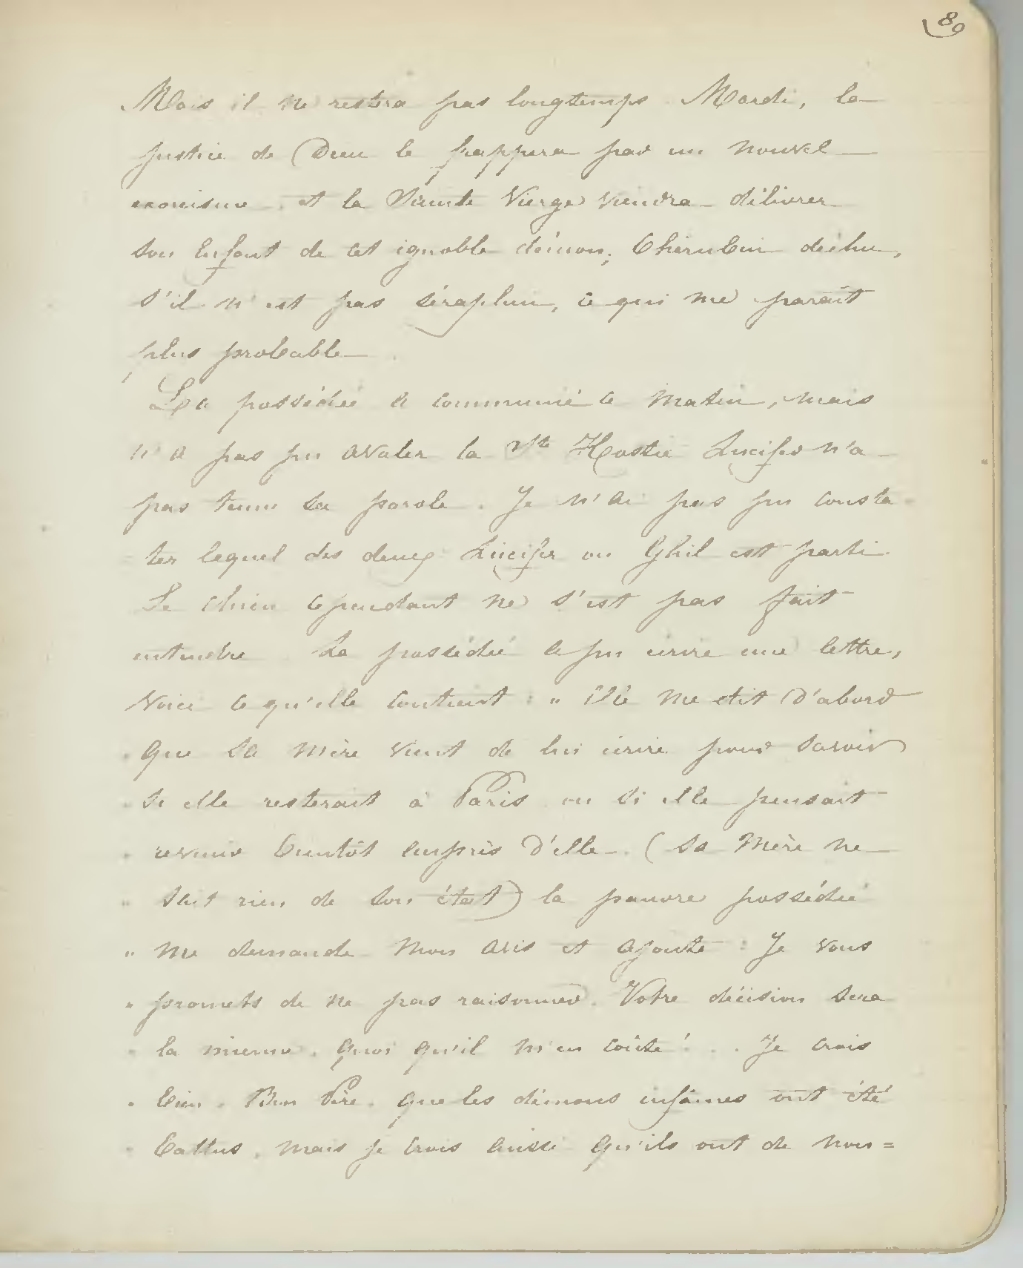 89
Mais il ne restera pas longtemps. Mardi, la
justice de Dieu le frappera par un nouvel
exorcisme, et la Sainte Vierge viendra délivrer
son Enfant de cet ignoble démon; Chérubin déchu,
s'il n'est pas séraphin, ce qui me parait
plus probable.
La possédée a communié ce matin, mais
n'a pas pu avaler la Ste Hostie Lucifer n'a
pas tenu sa parole. Je n'ai pas pu consta
ter lequel des deux Lucifer ou est parti
Le chien cependant ne s'est pas fait
entendre. La possédée a pu écrire une lettre,
Voici ce qu'elle contient : " Elle me dit d'abord
" que sa mère vient de lui écrire pour savoir
" si elle resterait à Paris ou si elle pensait
" revenir bientôt auprès d'elle. (Sa mère ne
" sait rien de son état) la pauvre possédée
" me demande mon avis et ajoute : Je vous
" promets de ne pas raisonner. Votre décision sera
" la mienne, quoi qu'il m'en coûte ! .. Je crois
" bien, Bon Père, que les démons infâmes ont été
" battus, mais je crois aussi qu'ils ont de nou=